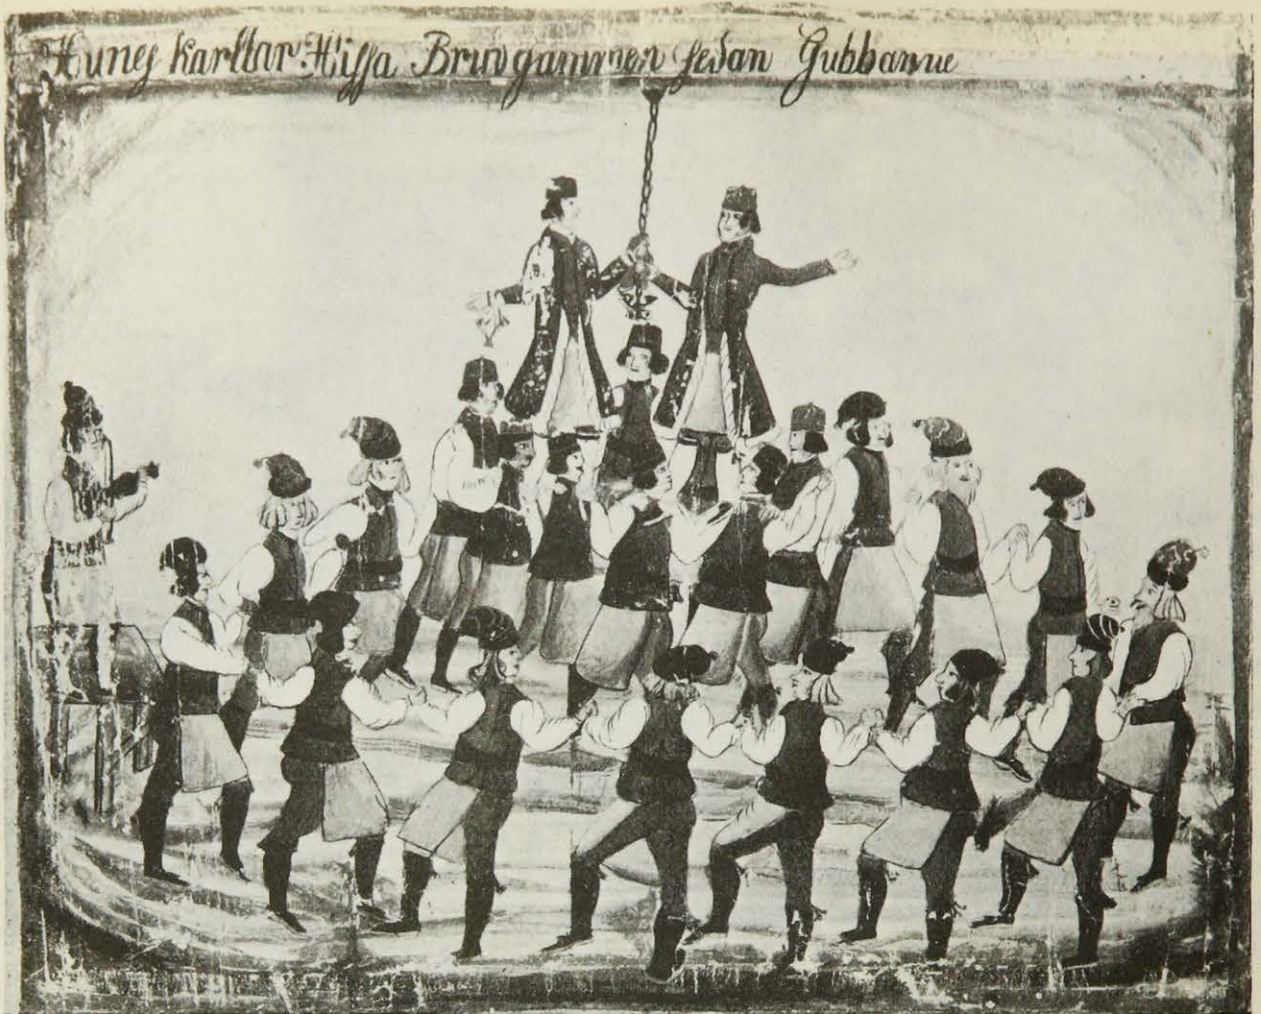 Hunes Karllar Hissa Brudgammen sedan Gubbarne